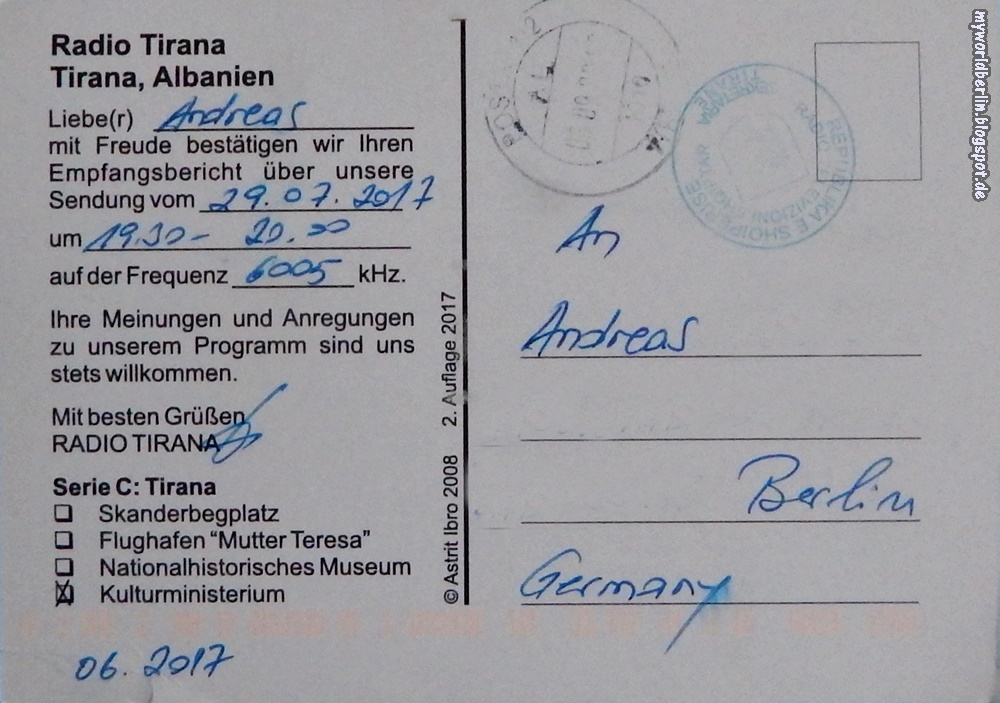 Radio Tirana
Tirana, Albanien
Liebe(r) Andreas
mit Freude bestätigen wir Ihren
Empfangsbericht über unsere
Sendung vom 29.07.2017
um 19.30 – 20.00
auf der Frequenz 6005 kHz.
Ihre Meinungen und Anregungen
zu unserem Programm sind uns
stets willkommen.
Mit besten Grüßen
RADIO TIRANA
Serie C: Tirana
Skanderbegplatz
Flughafen “Mutter Teresa”
Nationalhistorisches Museum
Kulturministerium
06. 2017
© Astrit Ibro 2008 2. Auflage 2017
REPUBLIKA E SHQIPERISE
TIRANE
An
Andreas
Berlin
Germany
myworldberlin.blogspot.de